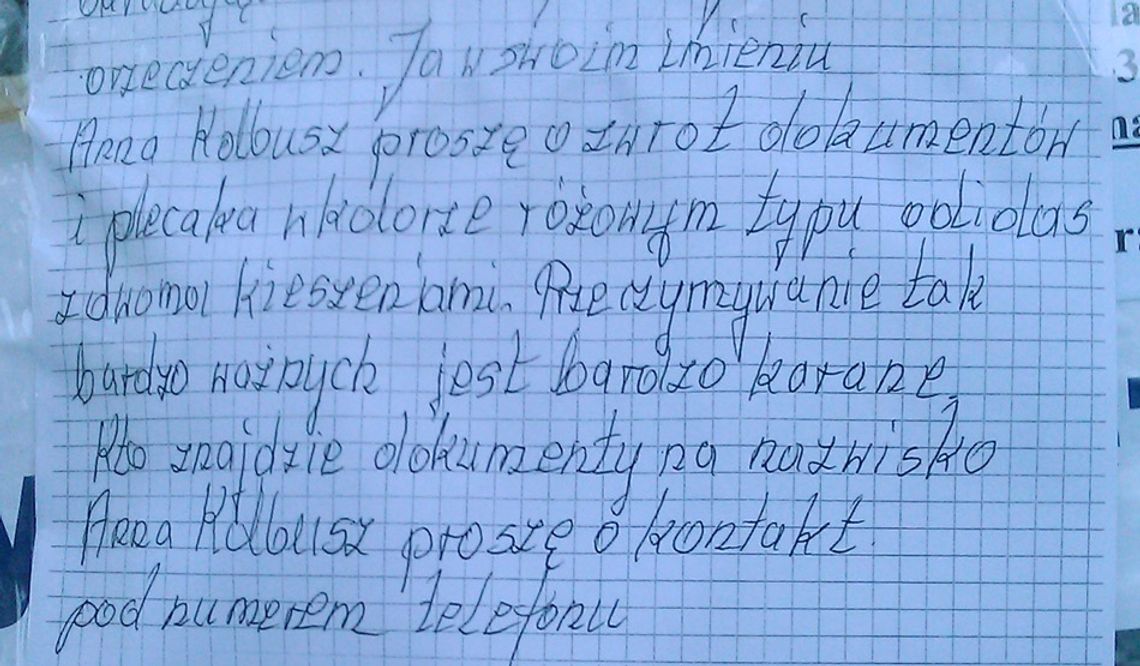 orzeczeniem. Ja w swoim imieniu
Anna Kolbusz proszę o zwrot dokumentów
i plecaka w kolorze różowym typu adidas
z dwoma kieszeniami. Przeczymywanie tak
bardzo ważnych jest bardzo karane.
Kto znajdzie dokumenty na nazwisko
Anna Kolbusz proszę o kontakt.
pod numerem telefonu